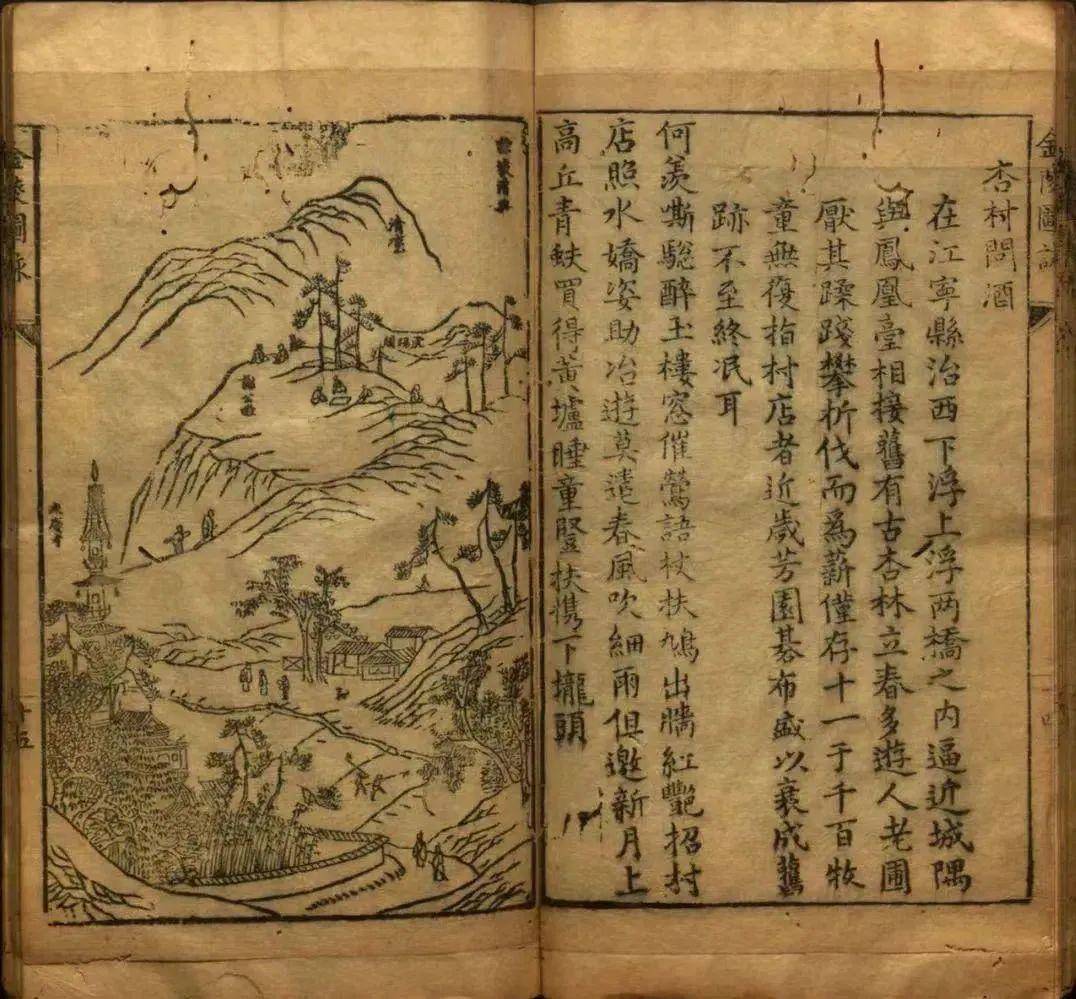 金陵圖詠
杏村問酒
在江寧縣治西下浮上浮两橋之内逼近城隅
與鳳凰臺相接舊有古杏林立春多遊人老圃
厭其蹂踐攀折伐而爲薪僅存十一于千百牧
童無復指村店者近歲芳園碁布盛以衰成舊
跡不至終泯耳
何羨嘶驄醉玉樓窓催鶯語杖扶鳩出牆紅艷招村
店照水嬌姿助冶遊莫遣春風吹細雨但邀新月上
高丘青蚨買得黃壚睡童豎扶携下壠頭
謝墩清興
清凉
謝公墩
永慶寺
金陵圖詠
十五